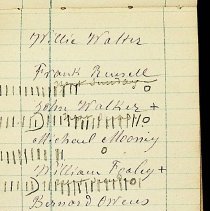 Willie Walter
Frank Russell
next Sunday
John Walker +
Michael Mooney
William Fealey +
Bernard Owens